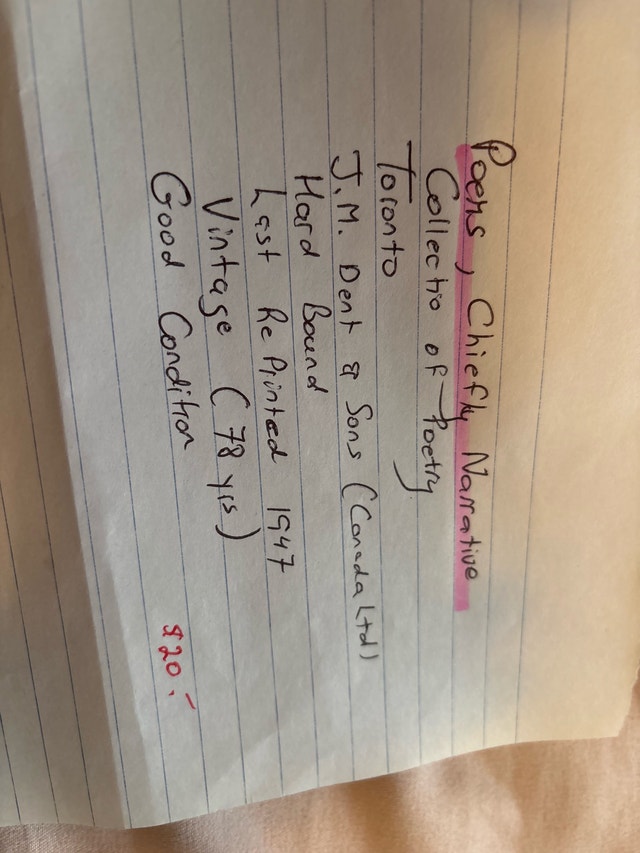 Poems, Chiefly Narrative
Collectio of Poetry
Toronto
J.M. Dent & Sons (Canada Ltd)
Hard Bound
Last RePrinted 1947
Vintage (78 yrs)
Good Condition
$20.-